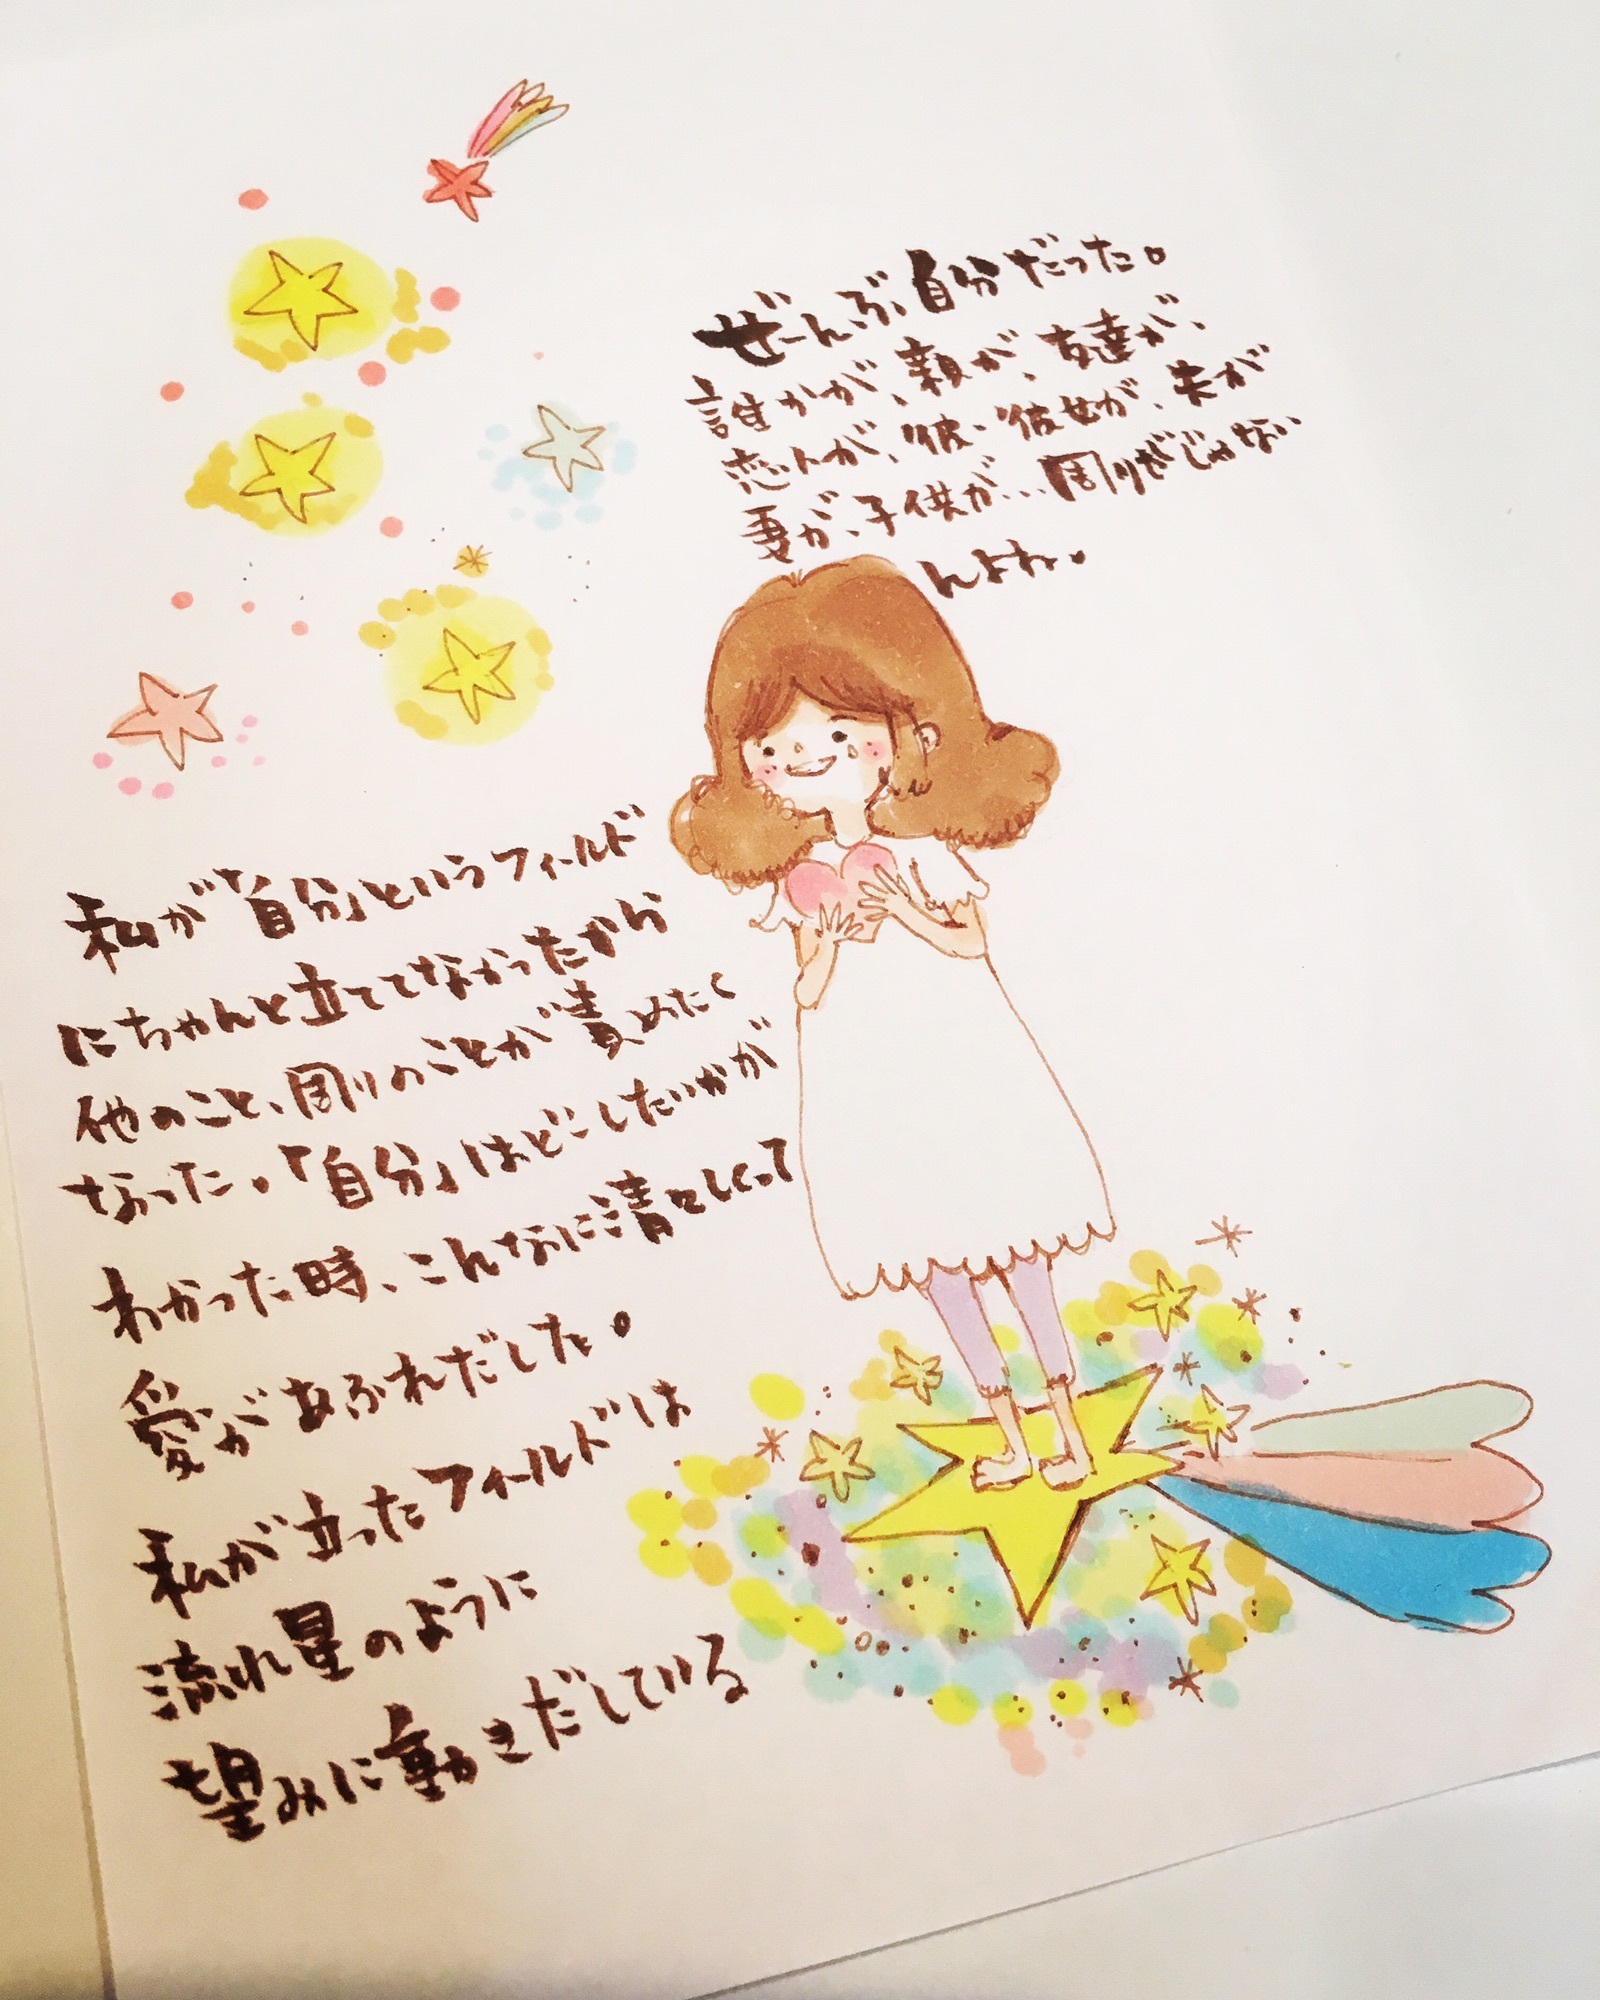 ぜーんぶ、自分だった。
誰かが、親が、友達が、
恋人が、彼・彼女が、夫が
妻が、子供が...周りがじゃない
んよね。
私が「自分」というフィールド
にちゃんと立ててなかったから
他のこと、周りのことが責めたく
なった。「自分」はどーしたいかが
わかった時、こんなに清々しくって
愛があふれだした。
私が立ったフィールドは
流れ星のように
望みに動きだしている